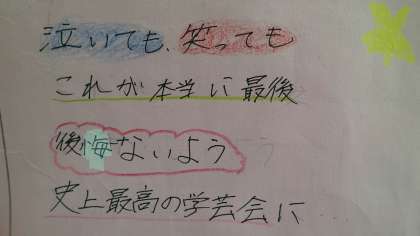 泣いても、笑っても
これが本当に最後
後悔ないよう
史上最高の学芸会に…